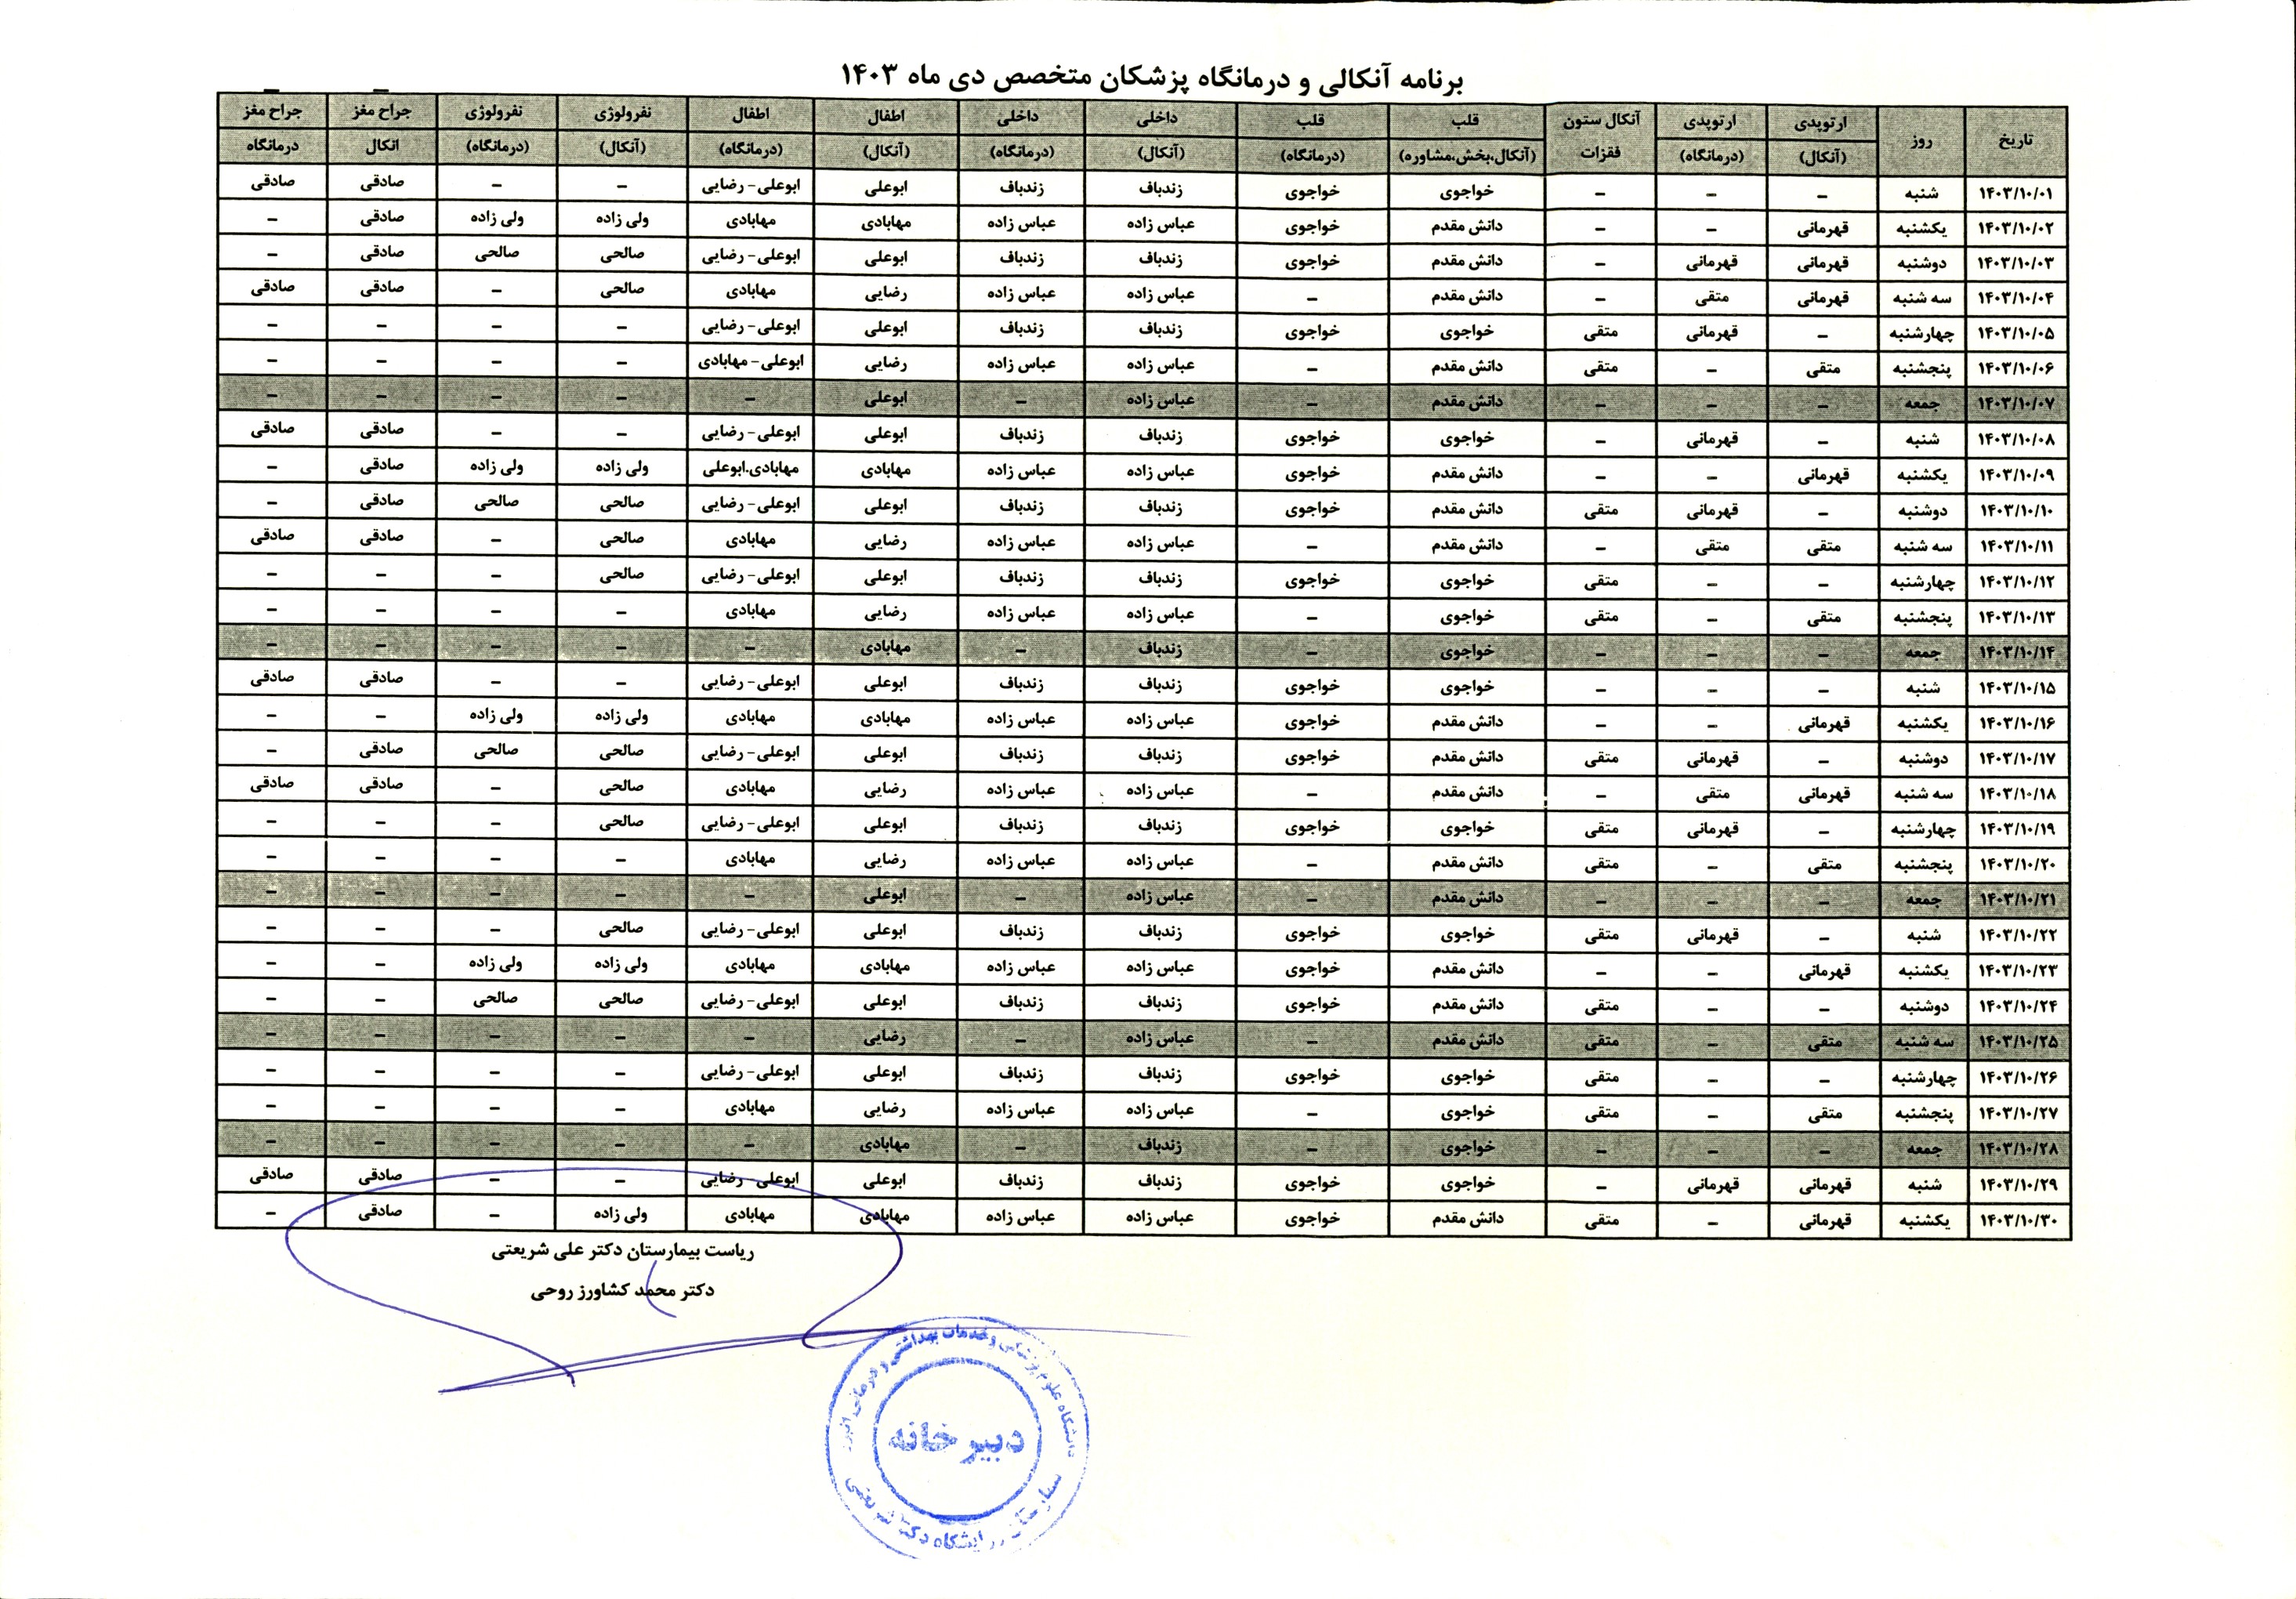 برنامه آنکالی و درمانگاه پزشکان متخصص دی ماه ۱۴۰۳
تاریخ روز ارتوپدی (آنکال) ارتوپدی (درمانگاه) آنکال ستون فقزات قلب (آنکال،بخش،مشاوره) قلب (درمانگاه) داخلی (آنکال) داخلی (درمانگاه) اطفال (آنکال) اطفال (درمانگاه) نفرولوژی (آنکال) نفرولوژی (درمانگاه) جراح مغز انکال جراح مغز درمانگاه
۱۴۰۳/۱۰/۰۱ شنبه – – – خواجوی خواجوی زندباف زندباف ابوعلی ابوعلی- رضایی – – صادقی صادقی
۱۴۰۳/۱۰/۰۲ یکشنبه قهرمانی – – دانش مقدم خواجوی عباس زاده عباس زاده مهابادی مهابادی ولی زاده ولی زاده صادقی –
۱۴۰۳/۱۰/۰۳ دوشنبه قهرمانی قهرمانی – دانش مقدم خواجوی زندباف زندباف ابوعلی ابوعلی- رضایی صالحی صالحی صادقی –
۱۴۰۳/۱۰/۰۴ سه شنبه قهرمانی متقی – دانش مقدم – عباس زاده عباس زاده رضایی مهابادی صالحی – صادقی صادقی
۱۴۰۳/۱۰/۰۵ چهارشنبه – قهرمانی متقی خواجوی خواجوی زندباف زندباف ابوعلی ابوعلی- رضایی – – – –
۱۴۰۳/۱۰/۰۶ پنجشنبه متقی – متقی دانش مقدم – عباس زاده عباس زاده رضایی ابوعلی- مهابادی – – – –
۱۴۰۳/۱۰/۰۷ جمعه – – – دانش مقدم – عباس زاده – ابوعلی – – – – –
۱۴۰۳/۱۰/۰۸ شنبه – قهرمانی – خواجوی خواجوی زندباف زندباف ابوعلی ابوعلی- رضایی – – صادقی صادقی
۱۴۰۳/۱۰/۰۹ یکشنبه قهرمانی – – دانش مقدم خواجوی عباس زاده عباس زاده مهابادی مهابادی.ابوعلی ولی زاده ولی زاده صادقی –
۱۴۰۳/۱۰/۱۰ دوشنبه – قهرمانی متقی دانش مقدم خواجوی زندباف زندباف ابوعلی ابوعلی- رضایی صالحی صالحی صادقی –
۱۴۰۳/۱۰/۱۱ سه شنبه متقی متقی – دانش مقدم – عباس زاده عباس زاده رضایی مهابادی صالحی – صادقی صادقی
۱۴۰۳/۱۰/۱۲ چهارشنبه – – متقی خواجوی خواجوی زندباف زندباف ابوعلی ابوعلی- رضایی صالحی – – –
۱۴۰۳/۱۰/۱۳ پنجشنبه متقی – متقی خواجوی – عباس زاده عباس زاده رضایی مهابادی – – – –
۱۴۰۳/۱۰/۱۴ جمعه – – – خواجوی – زندباف – مهابادی – – – – –
۱۴۰۳/۱۰/۱۵ شنبه – – – خواجوی خواجوی زندباف زندباف ابوعلی ابوعلی- رضایی – – صادقی صادقی
۱۴۰۳/۱۰/۱۶ یکشنبه قهرمانی – – دانش مقدم خواجوی عباس زاده عباس زاده مهابادی مهابادی ولی زاده ولی زاده – –
۱۴۰۳/۱۰/۱۷ دوشنبه – قهرمانی متقی دانش مقدم خواجوی زندباف زندباف ابوعلی ابوعلی- رضایی صالحی صالحی صادقی –
۱۴۰۳/۱۰/۱۸ سه شنبه قهرمانی متقی – دانش مقدم – عباس زاده عباس زاده رضایی مهابادی صالحی – صادقی صادقی
۱۴۰۳/۱۰/۱۹ چهارشنبه – قهرمانی متقی خواجوی خواجوی زندباف زندباف ابوعلی ابوعلی- رضایی صالحی – – –
۱۴۰۳/۱۰/۲۰ پنجشنبه متقی – متقی دانش مقدم – عباس زاده عباس زاده رضایی مهابادی – – – –
۱۴۰۳/۱۰/۲۱ جمعه – – – دانش مقدم – عباس زاده – ابوعلی – – – – –
۱۴۰۳/۱۰/۲۲ شنبه – قهرمانی متقی خواجوی خواجوی زندباف زندباف ابوعلی ابوعلی- رضایی صالحی – – –
۱۴۰۳/۱۰/۲۳ یکشنبه قهرمانی – – دانش مقدم خواجوی عباس زاده عباس زاده مهابادی مهابادی ولی زاده ولی زاده – –
۱۴۰۳/۱۰/۲۴ دوشنبه – – متقی دانش مقدم خواجوی زندباف زندباف ابوعلی ابوعلی- رضایی صالحی صالحی – –
۱۴۰۳/۱۰/۲۵ سه شنبه متقی – متقی دانش مقدم – عباس زاده – رضایی – – – – –
۱۴۰۳/۱۰/۲۶ چهارشنبه – – متقی خواجوی خواجوی زندباف زندباف ابوعلی ابوعلی- رضایی – – – –
۱۴۰۳/۱۰/۲۷ پنجشنبه متقی – متقی خواجوی – عباس زاده عباس زاده رضایی مهابادی – – – –
۱۴۰۳/۱۰/۲۸ جمعه – – – خواجوی – زندباف – مهابادی – – – – –
۱۴۰۳/۱۰/۲۹ شنبه قهرمانی قهرمانی – خواجوی خواجوی زندباف زندباف ابوعلی ابوعلی- رضایی – – صادقی صادقی
۱۴۰۳/۱۰/۳۰ یکشنبه قهرمانی – متقی دانش مقدم خواجوی عباس زاده عباس زاده مهابادی مهابادی ولی زاده – صادقی –
ریاست بیمارستان دکتر علی شریعتی
دکتر محمد کشاورز روحی
دانشگاه علوم پزشکی و خدمات بهداشتی و درمانی البرز
دبیرخانه